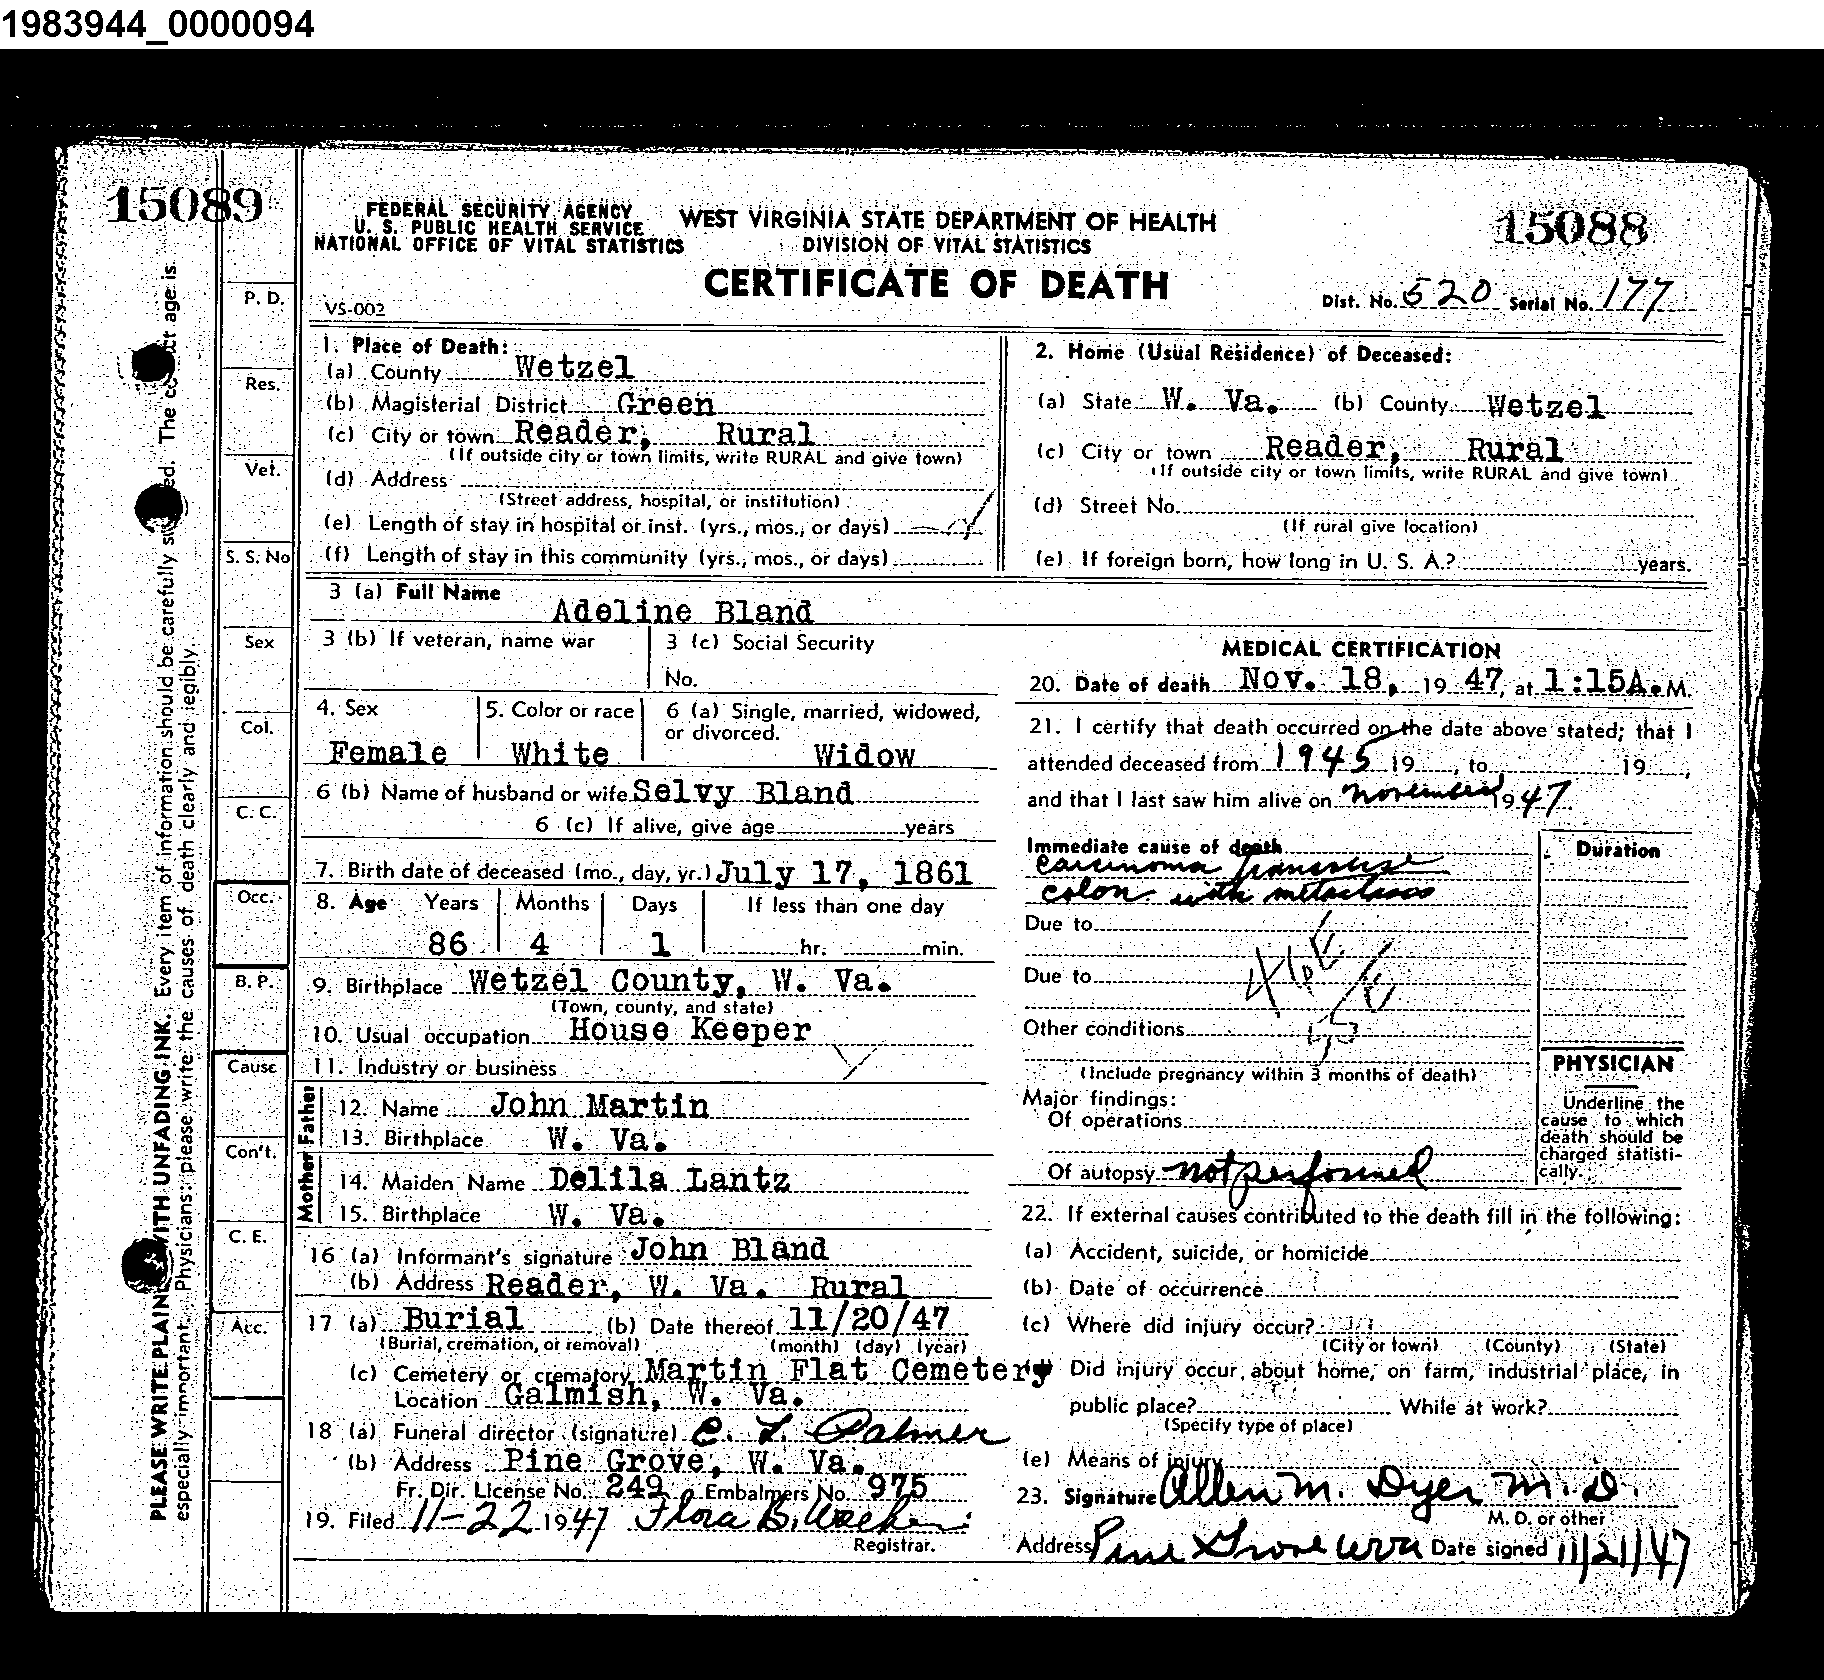 1983944_0000094
15089
15088
FEDERAL SECURITY AGENCY
U. S. PUBLIC HEALTH SERVICE
NATIONAL OFFICE OF VITAL STATISTICS
WEST VIRGINIA STATE DEPARTMENT OF HEALTH
DIVISION OF VITAL STATISTICS
CERTIFICATE OF DEATH
VS-002
Dist. No. 520 Serial No. 177
1. Place of Death:
(a) County Wetzel
(b) Magisterial District Green
(c) City or town Reader, Rural
(If outside city or town limits, write RURAL and give town)
(d) Address
(Street address, hospital, or institution)
(e) Length of stay in hospital or inst. (yrs., mos., or days)
(f) Length of stay in this community (yrs., mos., or days)
2. Home (Usual Residence) of Deceased:
(a) State W. Va. (b) County Wetzel
(c) City or town Reader, Rural
(If outside city or town limits, write RURAL and give town)
(d) Street No.
(If rural give location)
(e) If foreign born, how long in U. S. A.? years.
3 (a) Full Name
Adeline Bland
3 (b) If veteran, name war
3 (c) Social Security
No.
4. Sex
Female
5. Color or race
White
6 (a) Single, married, widowed,
or divorced.
Widow
6 (b) Name of husband or wife Selvy Bland
6 (c) If alive, give age years
7. Birth date of deceased (mo., day, yr.) July 17, 1861
8. Age Years Months Days If less than one day
86 4 1 hr. min.
9. Birthplace Wetzel County, W. Va.
(Town, county, and state)
10. Usual occupation House Keeper
11. Industry or business
Father
12. Name John Martin
13. Birthplace W. Va.
Mother
14. Maiden Name Delila Lantz
15. Birthplace W. Va.
16 (a) Informant's signature John Bland
(b) Address Reader, W. Va. Rural
17 (a) Burial (b) Date thereof 11/20/47
(Burial, cremation, or removal) (month) (day) (year)
(c) Cemetery or crematory Martin Flat Cemetery
Location Galmish, W. Va.
18 (a) Funeral director (signature) C. L. Palmer
(b) Address Pine Grove, W. Va.
Fr. Dir. License No. 249 Embalmers No. 975
19. Filed 11-22 1947 Flora B.
Registrar.
MEDICAL CERTIFICATION
20. Date of death Nov. 18, 19 47, at 1:15A.M.
21. I certify that death occurred on the date above stated; that I
attended deceased from 1945 19 , to 19 ,
and that I last saw him alive on November 1947
Immediate cause of death
carcinoma transverse
colon with metastases
Duration
Due to
Due to
Other conditions
(Include pregnancy within 3 months of death)
Major findings:
Of operations
Of autopsy not performed
PHYSICIAN
Underline the
cause to which
death should be
charged statisti-
cally.
22. If external causes contributed to the death fill in the following:
(a) Accident, suicide, or homicide
(b) Date of occurrence
(c) Where did injury occur?
(City or town) (County) (State)
Did injury occur about home, on farm, industrial place, in
public place? While at work?
(Specify type of place)
(e) Means of injury
23. Signature Allen M. Dyer M.D.
M. D. or other
Address Pine Grove WVa Date signed 11/21/47
P. D.
Res.
Vet.
S. S. No
Sex
Col.
C. C.
Occ.
B. P.
Cause
Con't.
C. E.
Acc.
PLEASE WRITE PLAINLY WITH UNFADING INK. Every item of information should be carefully The age is
especially important. Physicians: please write the causes of death clearly and legibly.